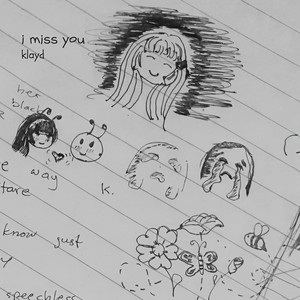 i miss you
klayd
her
black
way
k.
know just
speechless